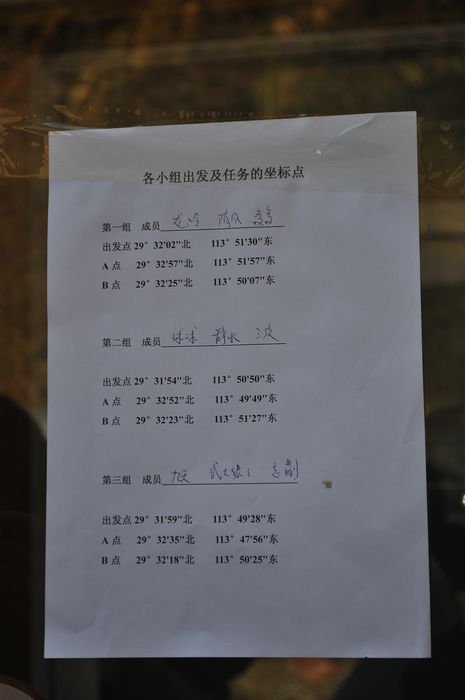 各小组出发及任务的坐标点
第一组 成员 龙吟
出发点 29°32'02"北 113°51'30"东
A 点 29°32'57"北 113°51'57"东
B 点 29°32'25"北 113°50'07"东
第二组 成员 球球 静水 三皮
出发点 29°31'54"北 113°50'50"东
A 点 29°32'52"北 113°49'49"东
B 点 29°32'23"北 113°51'27"东
第三组 成员 九天
出发点 29°31'59"北 113°49'28"东
A 点 29°32'35"北 113°47'56"东
B 点 29°32'18"北 113°50'25"东